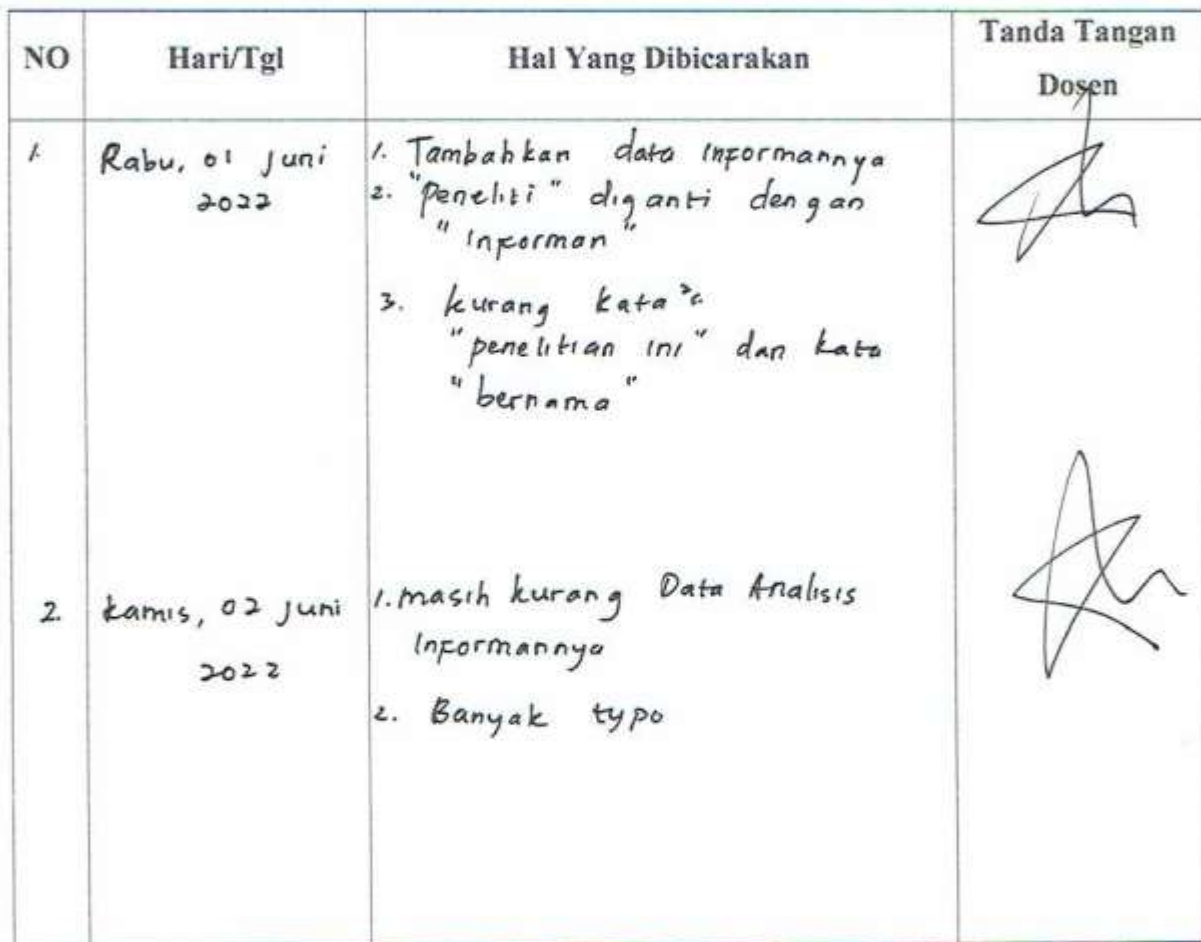 NO Hari/Tgl Hal Yang Dibicarakan Tanda Tangan
Dosen
1. Rabu, 01 Juni 2022
1. Tambahkan data informannya
2. "Peneliti" diganti dengan
"Informan"
3. kurang kata²
"penelitian ini" dan kata
"bernama"
2. Kamis, 02 Juni
2022
1. masih kurang Data Analisis
Informannya
2. Banyak typo